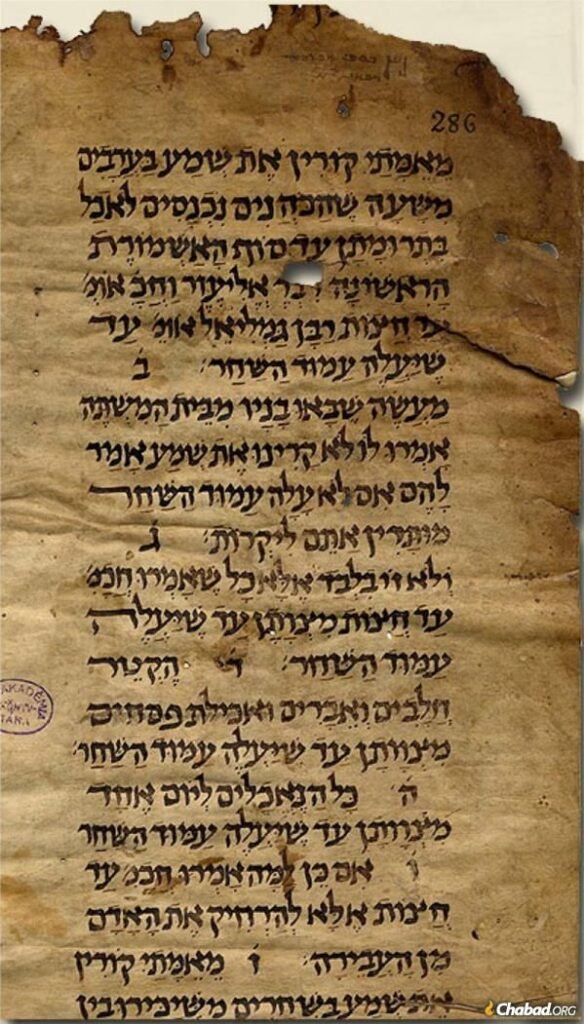 286
מאמתי קורין את שמע בערבים
משעה שהכהנים נכנסים לאכל
בתרומתן עד סוף האשמורת
הראשונה אליעזר וחכ׳ אומ׳
עד חצות רבן גמליאל אומ׳ עד
שיעלה עמוד השחר׃ ב
מעשה שבאו בניו מבית המשתה
אמרו לו לא קרינו את שמע אמר
להם אם לא עלה עמוד השחר
מותרין אתם ליקרות׃ ג
ולא זו בלבד אלא כל שאמרו חכמ׳
עד חצות מצותן עד שיעלה
עמוד השחר׃ ד הקטר
חלבים ואברים ואכילת פסחים
מיצוותן עד שיעלה עמוד השחר׃
ה כל הנאכלים ליום אחד
מיצוותן עד שיעלה עמוד השחר
ו אם כן למה אמרו חכמ׳ עד
חצות אלא להרחיק את האדם
מן העבירה׃ ז מאמתי קורין
את שמע בשחרים משיכירו בין
Chabad.ORG